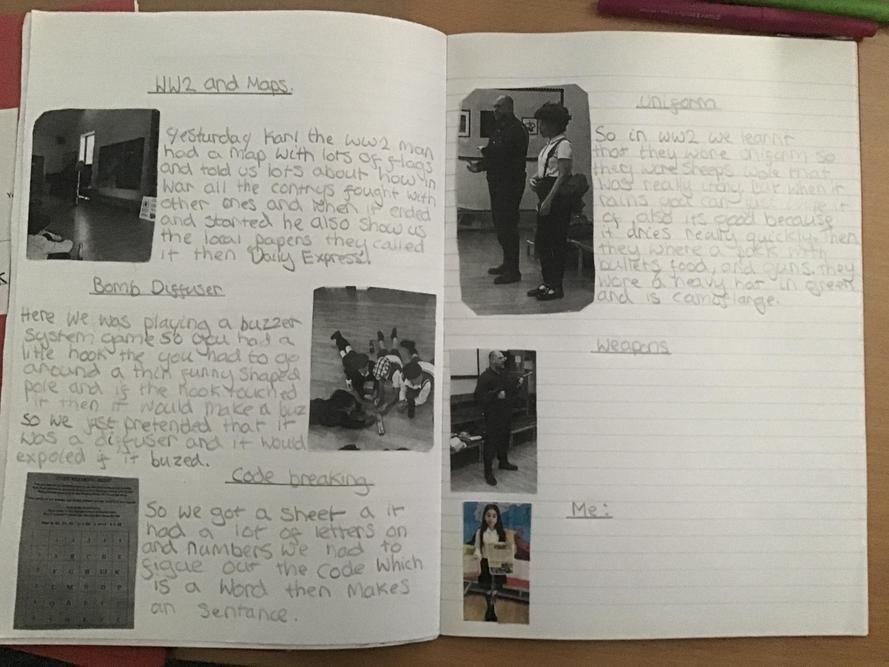 WW2 and Maps.
Yesturday Karl the WW2 man
had a map with lots of flags
and told us lots about how in
war all the contrys fought with
other ones and when it ended
and started he also show us
the local papers they called
it then Daily Express!
Bomb Diffuser
Here we was playing a buzzer
system game so you had a
litle hook the you had to go
around a thin funny shaped
pole and if the hook touched
it then it would make a buz
so we just pretended that it
was a diffuser and it would
expoled if it buzed.
Code breaking
So we got a sheet a it
had a lot of letters on
and numbers we had to
figue out the code which
is a word then makes
an sentance.
Unigorm
So in WW2 we learnt
that they wore unigorm so
they wore sheeps wole that
was really itchy but when it
rains you can
of also its good because
it dries really quickly. Then
they where a pack with
bullets food, and guns. they
wore a heavy hat in green
and is camoflange.
Weapons
Me: